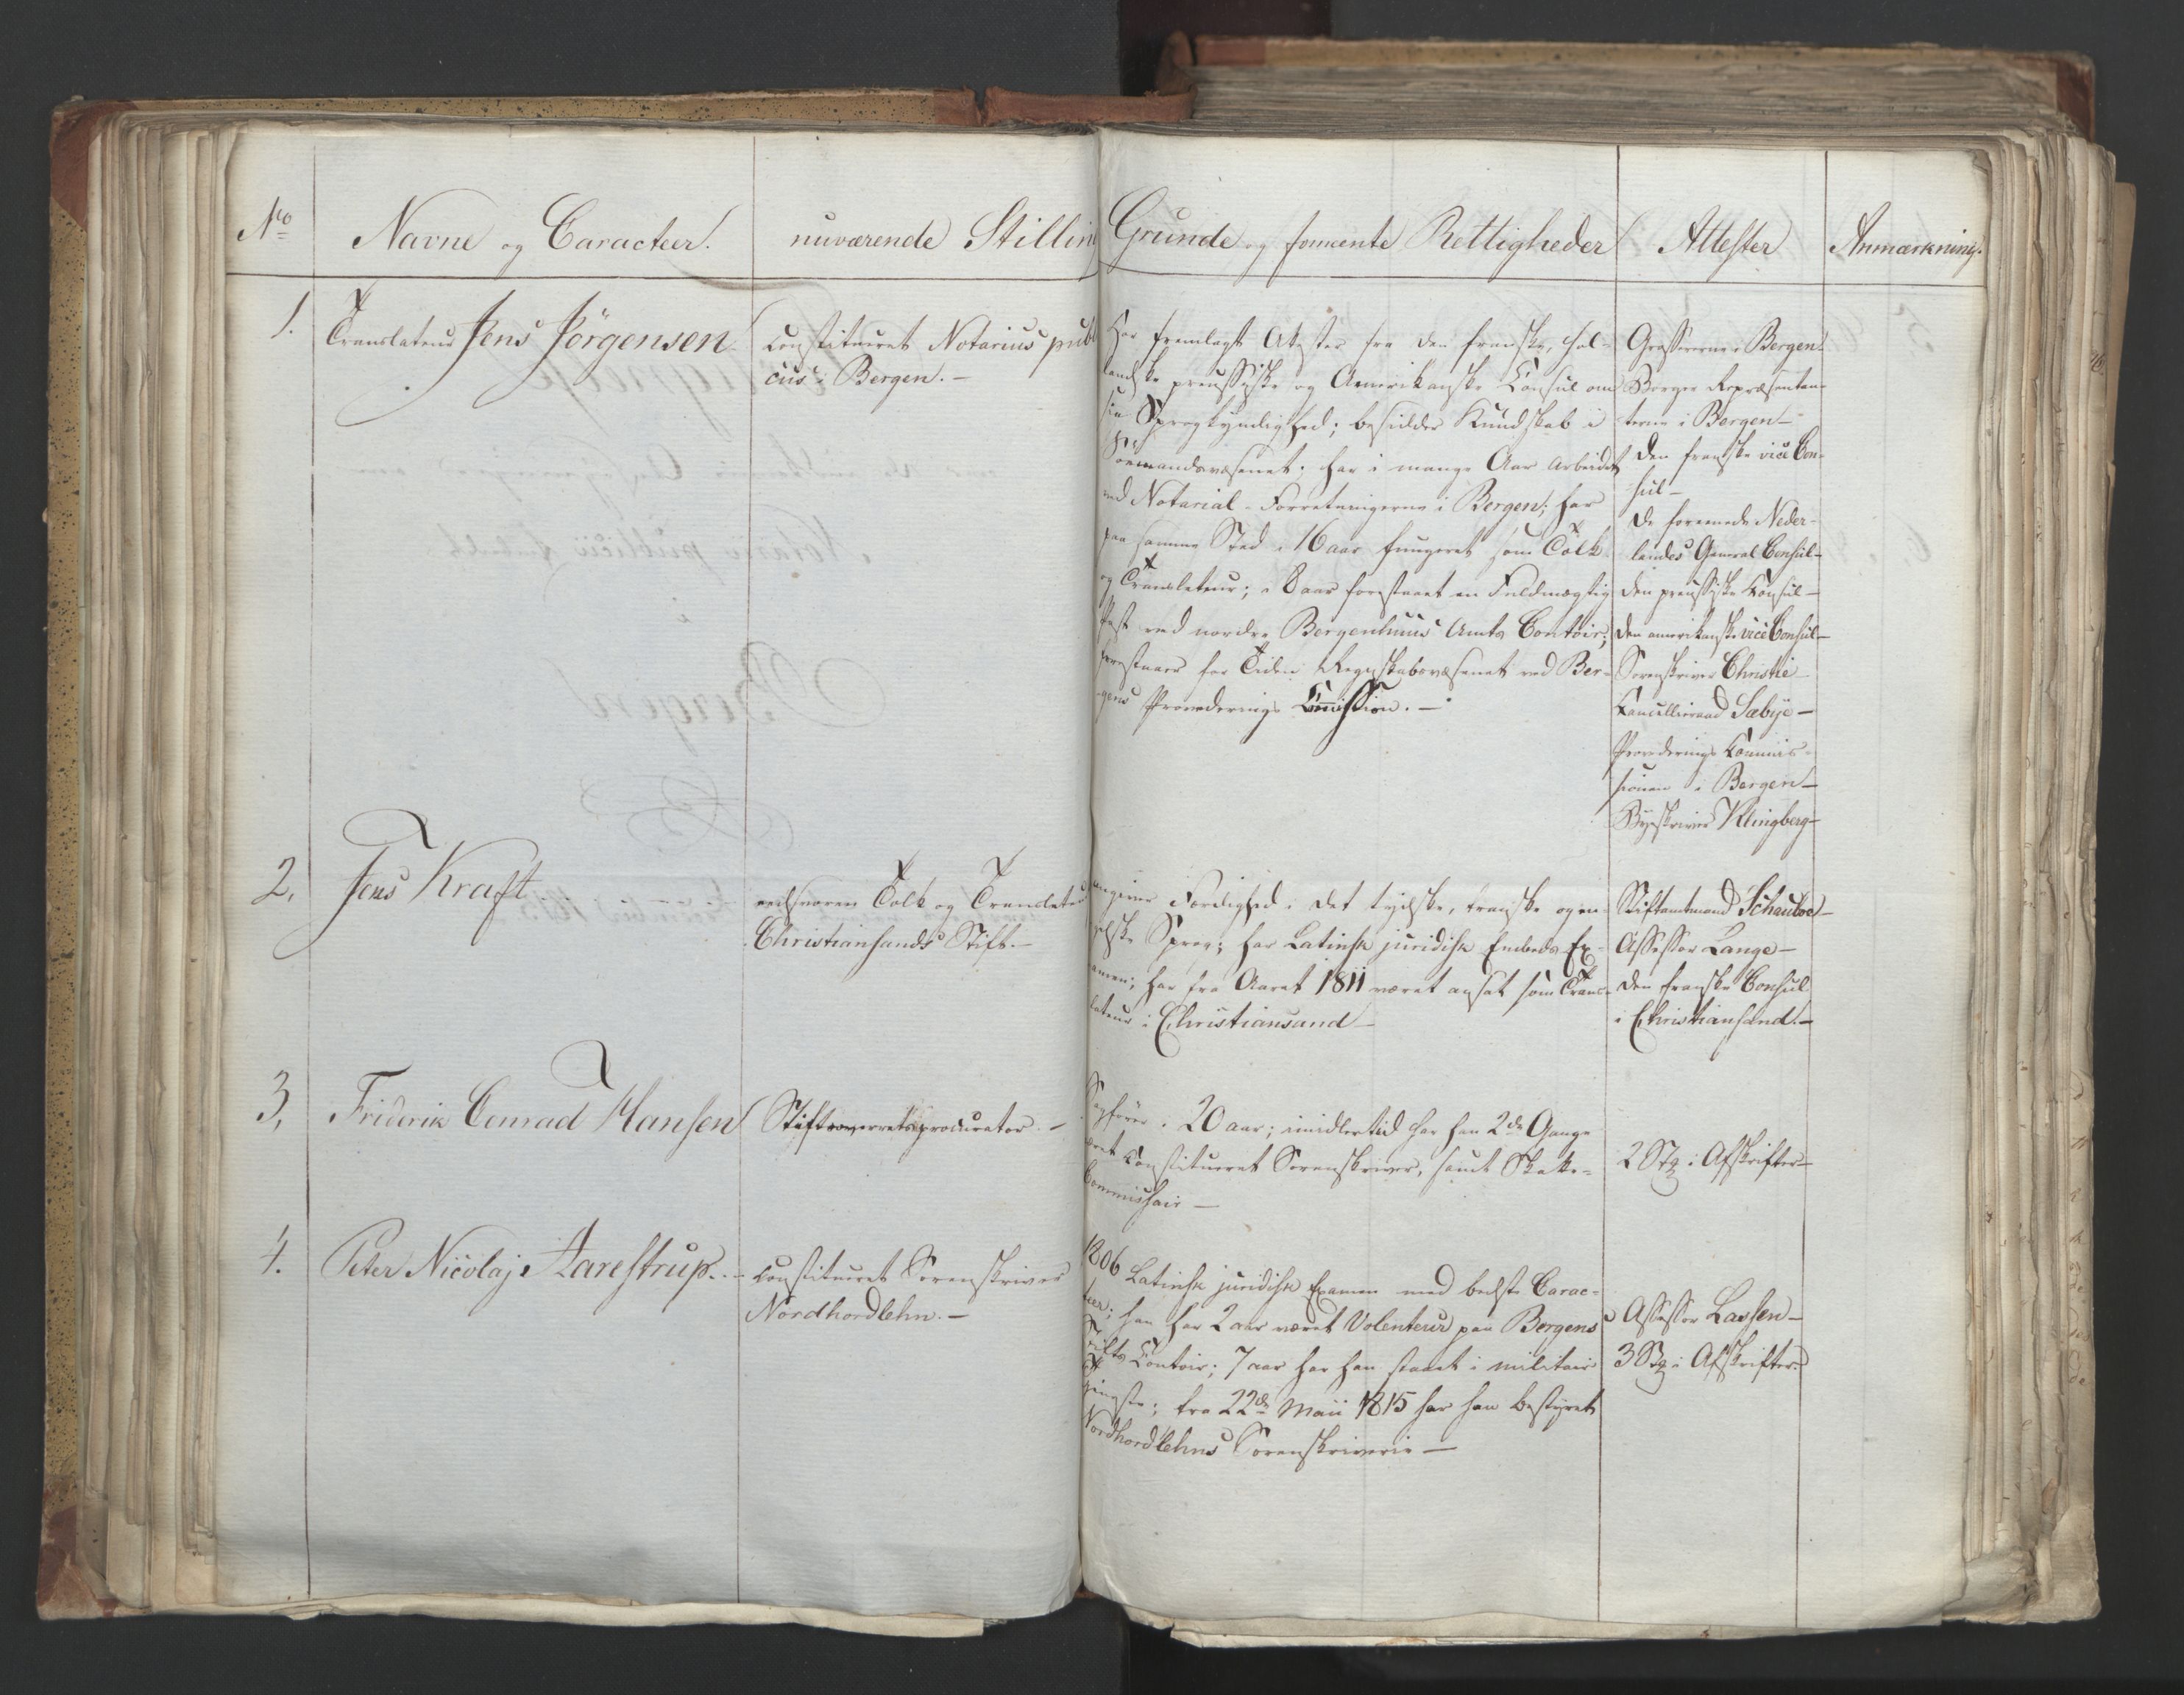 No Navne og Caracteer. nuværende Stilling Grunde og fomente Rettigheder Attester Anmærkning.
1. Translateur Jens Jörgensen
constitueret Notarius publi
cus i Bergen. –
Har fremlagt Attester fra den franske, hol-
landske preussiske og Amerikanske Consul om
sin Sprogkyndighed; besidder Kundskab i
Sömandsvæsenet; har i mange Aar arbeidet
ved Notarial-Forretningerne i Bergen; har
paa samme Sted i 16 aar fungeret som Tolk
og Translateur; i 8 aar forestaaet en Fuldmægtig
Post ved nordre Bergenhuus Amts Contoir;
forestaaer for Tiden Regnskabsvæsenet ved Ber-
gens Provideerings Commission. –
Grossererne i Bergen
Borger Repræsentan-
terne i Bergen –
den franske vice Con-
sul –
de forenede Neder-
landes General Consul –
den preussiske Consul –
den amerikanske vice Consul –
Sorenskriver Christie
Cancellieraad Sæbye –
Provideerings Commis-
sionen i Bergen –
Byeskriver Klingberg –
2. Jens Kraft
eedsvoren Tolk og Translateur
Christiansands Stift. –
angiver Færdighed i det tydske, franske og en-
gelske Sprog; har Latinsk juridisk Embeds Ex-
amen; har fra Aaret 1811 været ansat som Trans-
lateur i Christiansand –
Stiftamtmand Schauboe –
Assessor Lange –
den franske Consul
i Christiansand. –
3. Friderik Conrad Hansen
Stiftsoverretsprocurator. –
Sagförer i 20 aar; imidlertid har han 2de Gange
været Constitueret Sorenskriver, samt Skatte-
Commissair –
2 Stk i Afskrifter –
4. Peter Nicolaj Aarestrup. –
constitueret Sorenskriver
Nordhordlehn. –
1806 Latinsk juridisk Examen med bedste Carac-
teer; han har 2 aar været Volenteur paa Bergens
Stifts Contoir; 7 aar har han staaet i militair
Tjeneste; fra 22de Maii 1815 har han bestyret
Nordhordlehns Sorenskriverie –
Assessor Lassen –
3 Stk i Afskrifter –